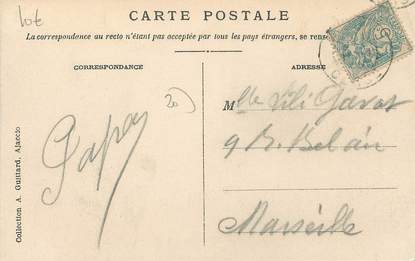 10€
CARTE POSTALE
La correspondance au recto n'étant pas acceptée par tous les pays étrangers, se rense
CORRESPONDANCE
ADRESSE
20
Mlle Lili Gavot
9 R. Belair
Marseille
Papa
Collection A. Guittard, Ajaccio